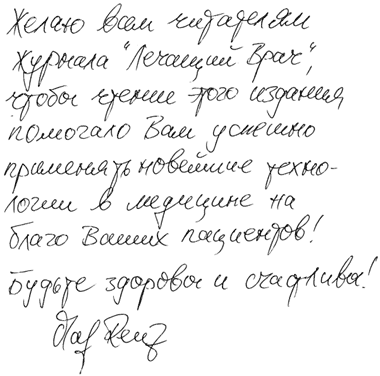 Желаю вам читателям
журнала "Лечащий Врач",
чтобы чтение этого издания
помогало Вам успешно
применять новейшие техно-
логии в медицине на
благо Ваших пациентов!
Будьте здоровы и счастливы!
Olaf Renz